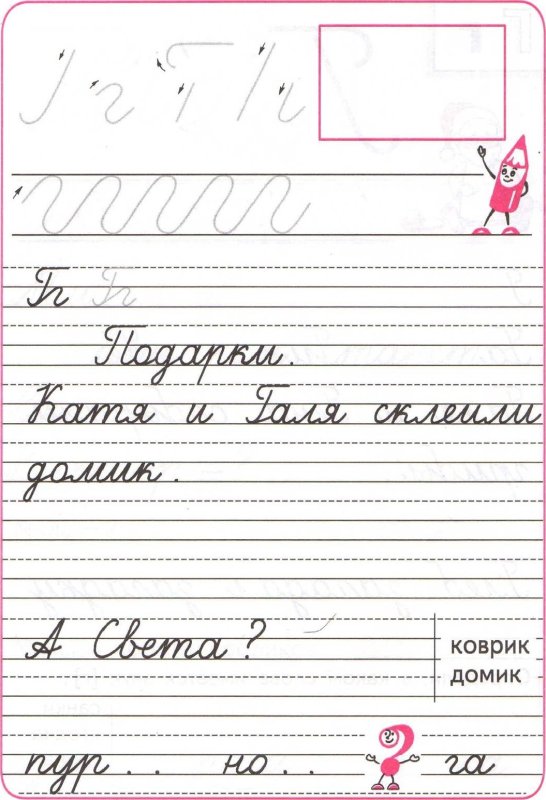 Гг Гг
Подарки.
Катя и Галя склеили
домик.
А Света?
коврик
домик
пур . . но . . га